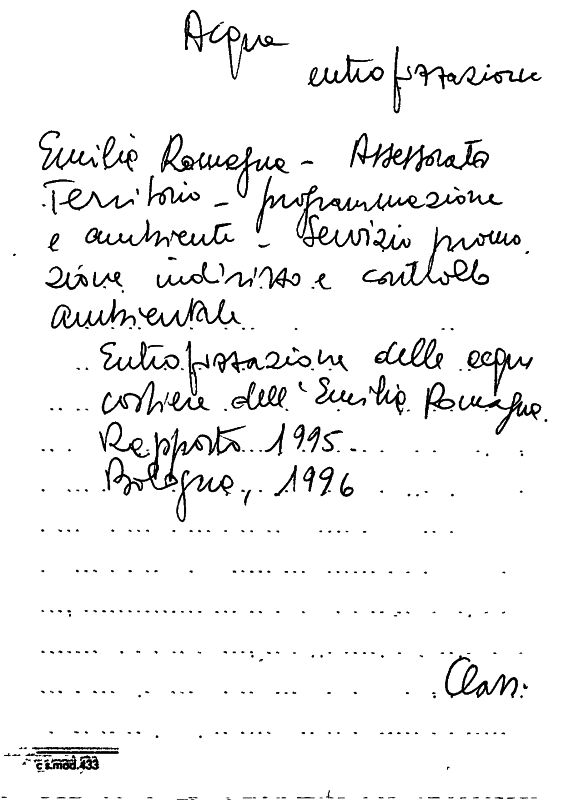 Acqua
eutrofizzazione
Emilia Romagna - Assessorato
Territorio - programmazione
e ambiente - Servizio promo
zione indirizzo e controllo
ambientale
Eutrofizzazione delle acque
costiere dell'Emilia Romagna.
Rapporto 1995
Bologna, 1996
Class.
c s.mod.433